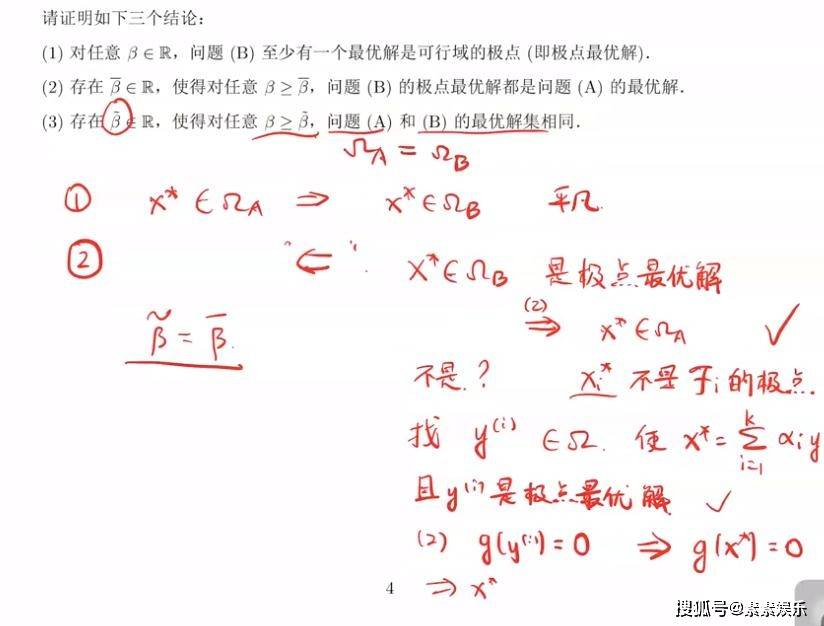 请证明如下三个结论:
(1) 对任意 β ∈ ℝ，问题 (B) 至少有一个最优解是可行域的极点 (即极点最优解).
(2) 存在 β̄ ∈ ℝ，使得对任意 β ≥ β̄，问题 (B) 的极点最优解都是问题 (A) 的最优解.
(3) 存在 β̃ ∈ ℝ，使得对任意 β ≥ β̃，问题 (A) 和 (B) 的最优解集相同.
Ω_A = Ω_B
① x* ∈ Ω_A ⇒ x* ∈ Ω_B 平凡.
② "⇐". x* ∈ Ω_B 是极点最优解
(2) ⇒ x* ∈ Ω_A ✓
β̃ = β̄.
不是? x_i* 不是 的极点.
找 y⁽ⁱ⁾ ∈ Ω. 使 x* = Σ_{i=1}^{k} α_i y
且 y⁽ⁱ⁾ 是极点最优解 ✓
(2) g(y⁽ⁱ⁾) = 0 ⇒ g(x*) = 0
⇒ x*
4
搜狐号@素素娱乐